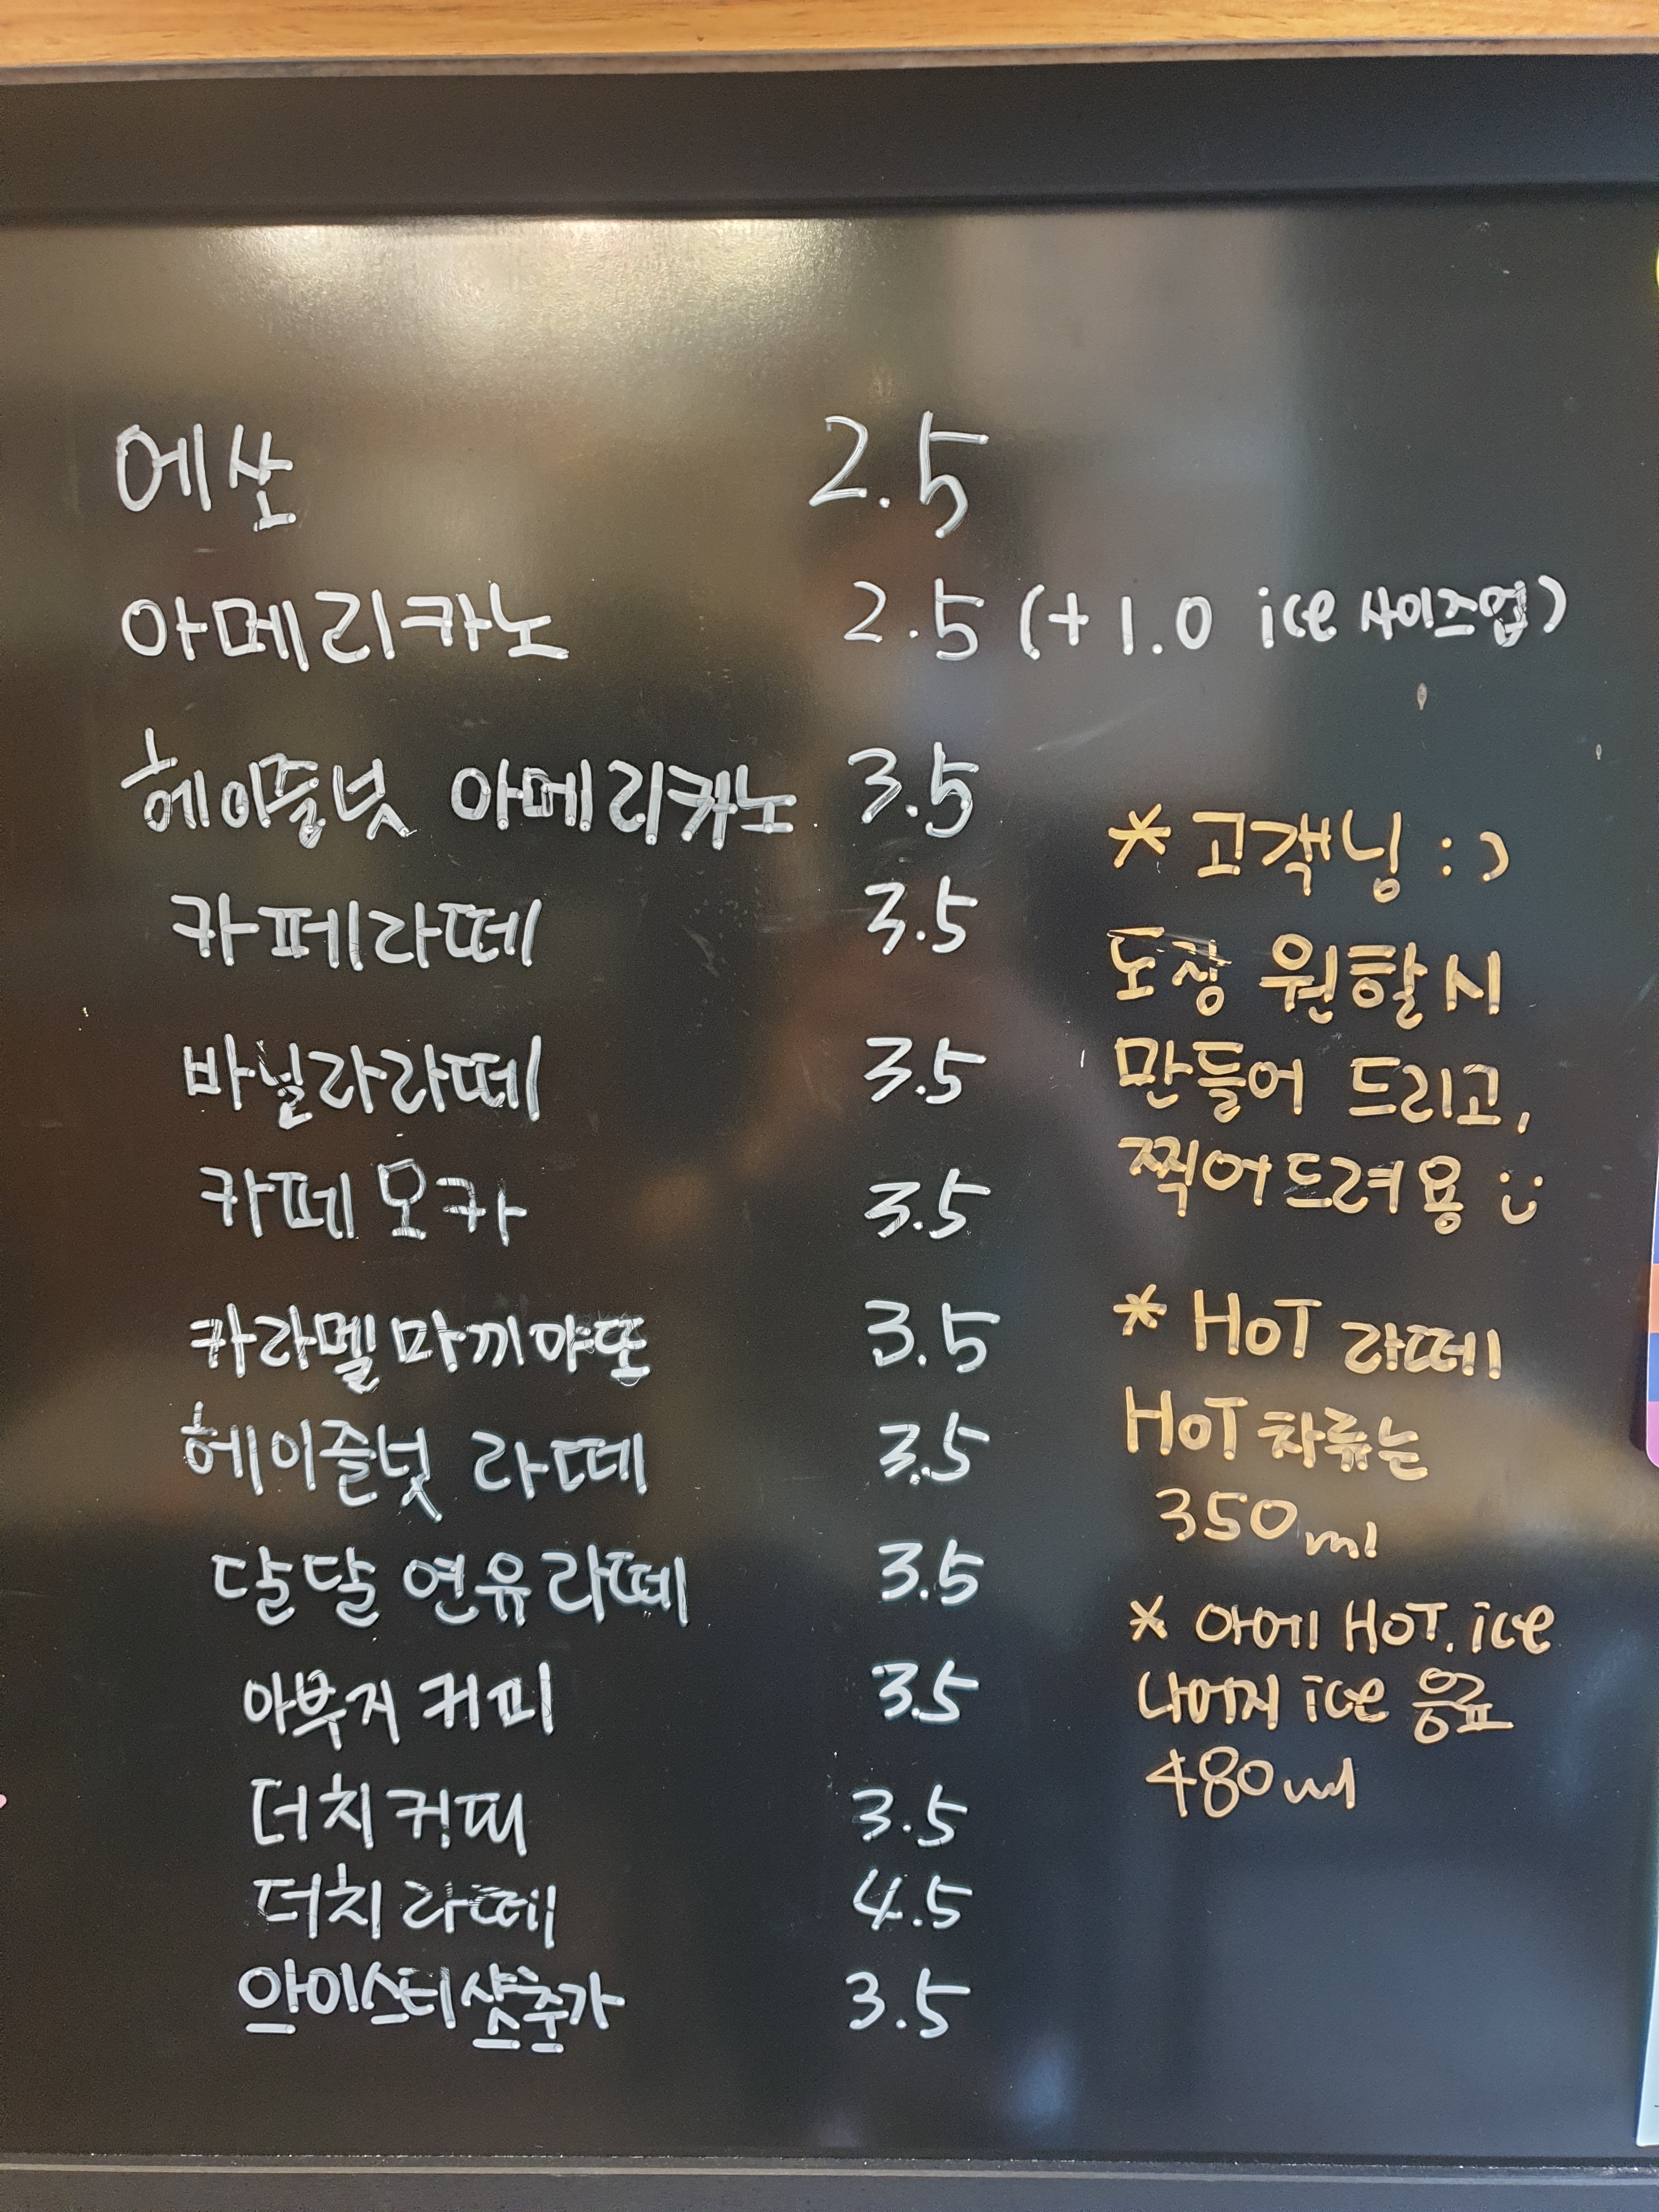 에쏘 2.5
아메리카노 2.5 (+1.0 ice 사이즈업)
헤이즐넛 아메리카노 3.5
카페라떼 3.5
바닐라라떼 3.5
카페모카 3.5
카라멜마끼야또 3.5
헤이즐넛 라떼 3.5
달달 연유라떼 3.5
아부지 커피 3.5
더치커피 3.5
더치라떼 4.5
아이스티샷추가 3.5
* 고객닝 :)
도장 원할시
만들어 드리고,
찍어드려용 :)
* HOT 라떼
HOT 차류는
350ml
* 아메 HOT. ice
나머지 ice 음료
480ml